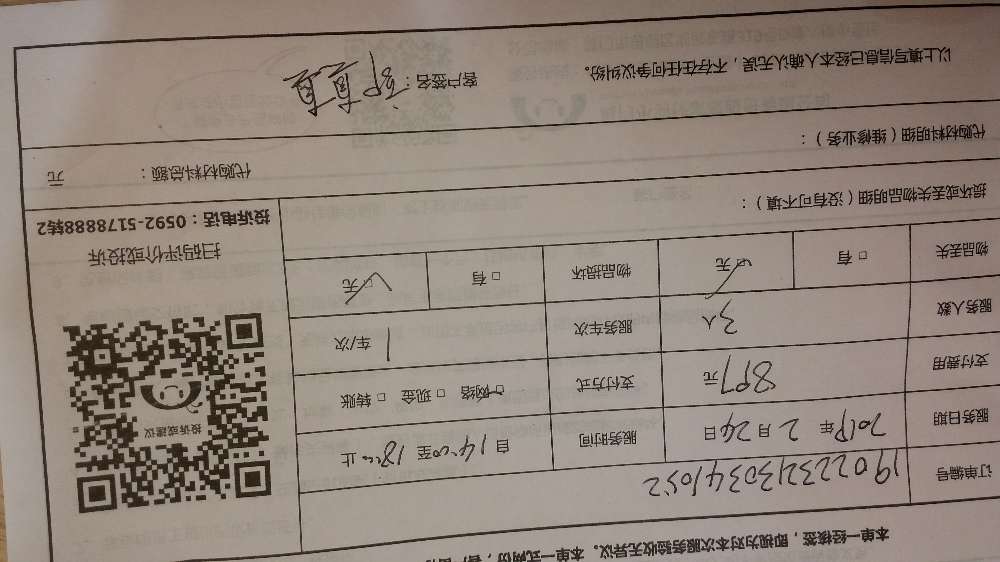 本单一经核签，即视为对本次服务验收无异议。本单一式两份，客户
订单编号 1902232130341052
服务日期 2019 年 2 月 24 日 服务时间 自 14:00 至 18:00 止
支付费用 897 元 支付方式 □网络 □现金 □转账
服务人数 3人 服务车次 1 车/次
物品丢失 □有 □无 物品损坏 □有 □无
投诉或建议
扫码评价或投诉
投诉电话：0592-5178888转2
损坏或丢失物品明细（没有可不填）：
代购材料明细（维修业务）：
代购材料总额： 元
以上填写信息已经本人确认无误，不存在任何争议纠纷。 客户签名：